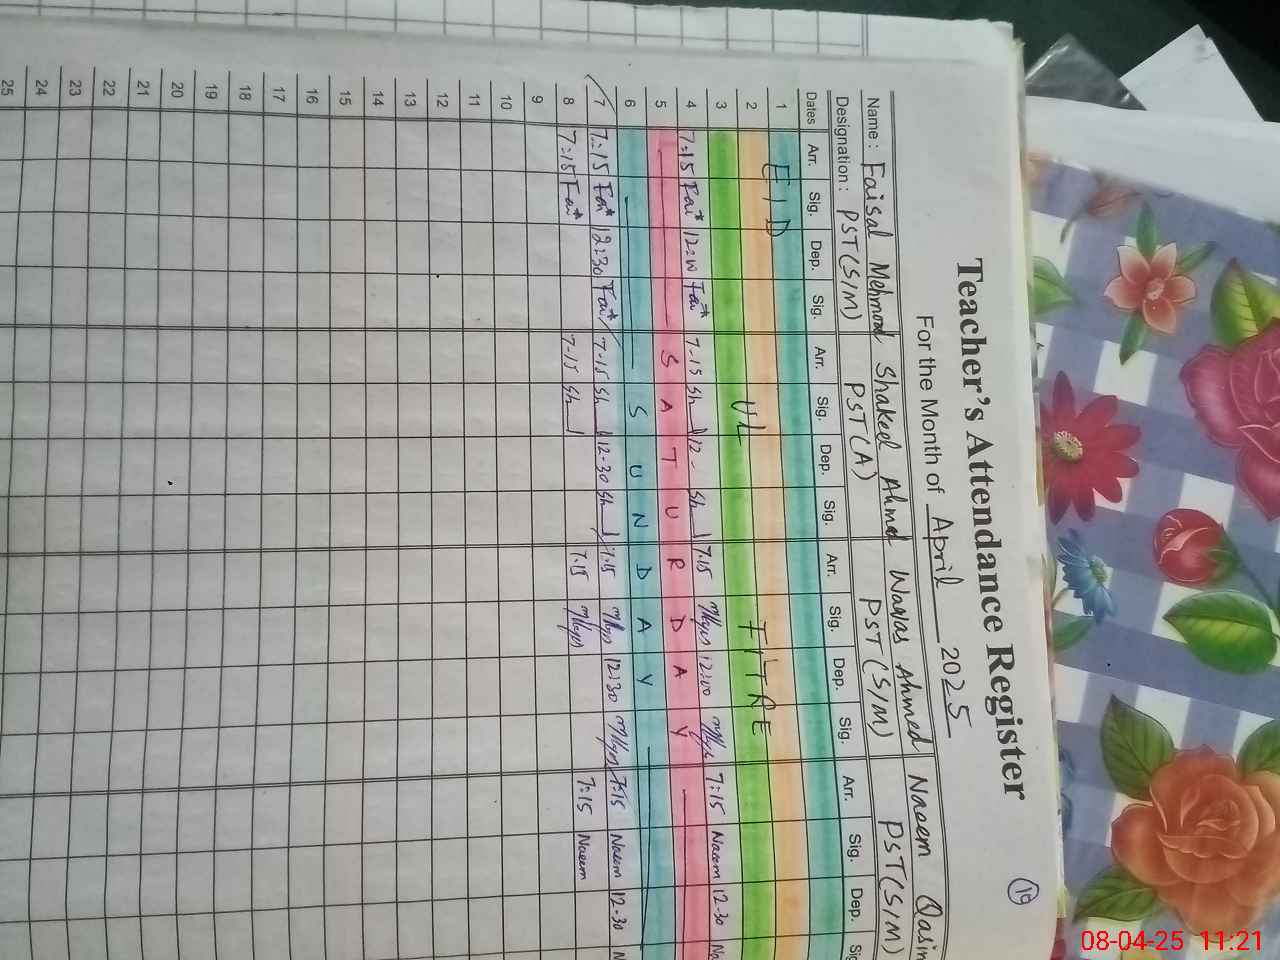 19
Teacher's Attendance Register
For the Month of April 2025
Name : Faisal Mehmood Shakeel Ahmd Waqas Ahmed Naeem Qasim
Designation : PST(S/M) PST(A) PST(S/M) PST(S/M)
Dates Arr. Sig. Dep. Sig. Arr. Sig. Dep. Sig. Arr. Sig. Dep. Sig. Arr. Sig. Dep.
1 EID
2 UL FITRE
3
4 7:15 Fai* 12:00 Fai* 7-15 Sh 12- Sh 7.15 12:00 7:15 Naeem 12-30
5 SATURDAY
6 SUNDAY
7 7:15 Fai* 12:30 Fai* 7-15 Sh 12-30 Sh 7:15 12:30 7:15 Naeem 12-30
8 7:15 Fai* 7-15 Sh 7.15 7:15 Naeem
9
10
11
12
13
14
15
16
17
18
19
20
21
22
23
24
25
08-04-25 11:21